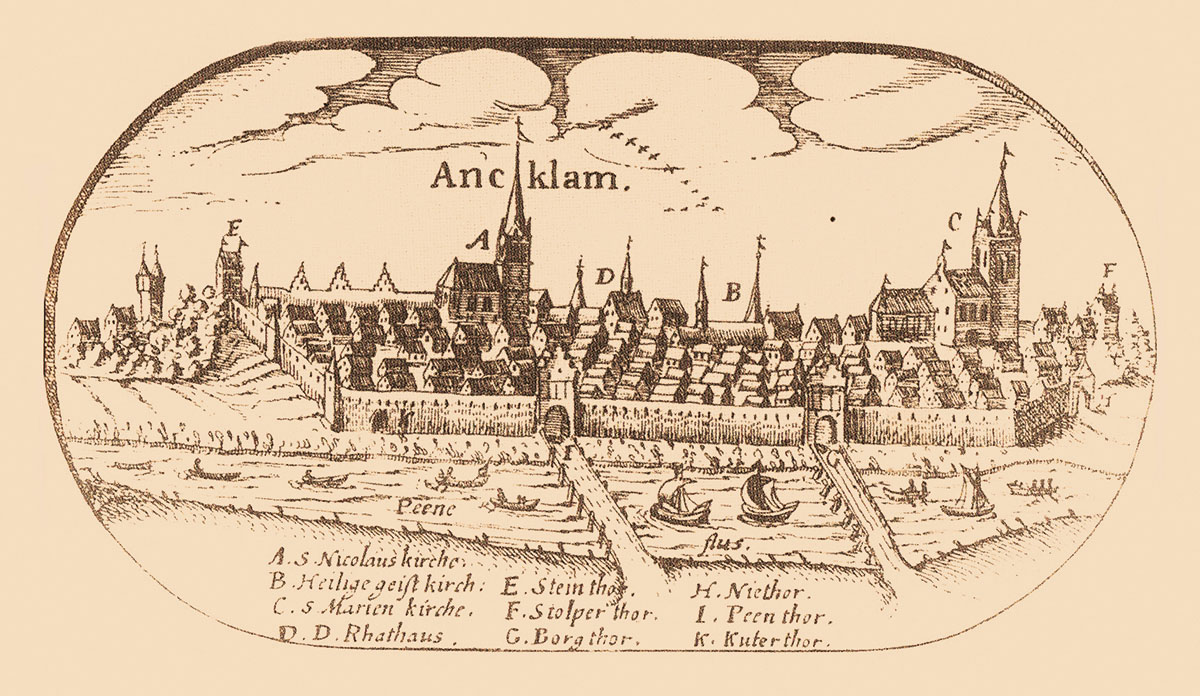 Anc klam.
E
A
C
D
B
F
K
I
Peene
flus.
A. S Nicolaus kirche.
B. Heilige geist kirch:
C. s Marien kirche.
D. D. Rhathaus.
E. Stein thor.
F. Stolper thor.
G. Borg thor.
H. Niethor.
I. Peen thor.
K. Kuter thor.